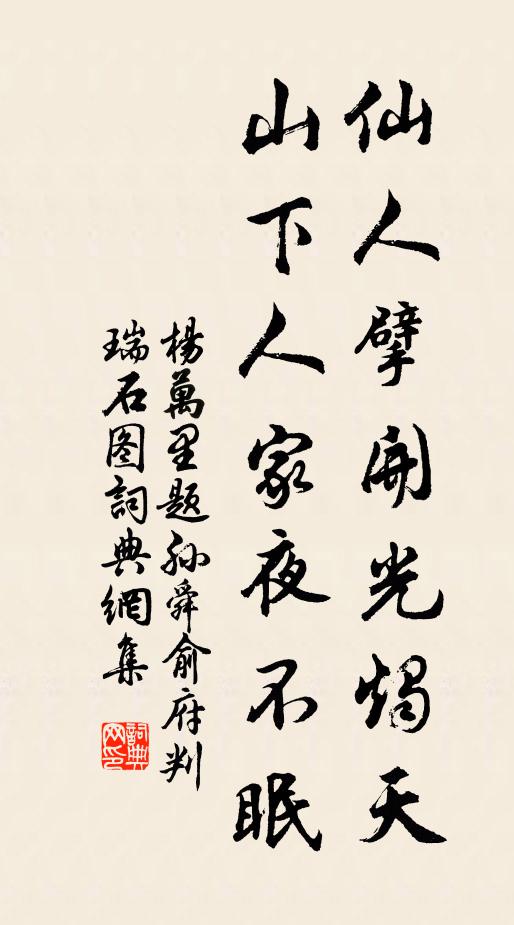 仙人擘開光燭天
山下人家夜不眠
楊萬里題孙舜俞府判
瑞石图詞典網集
詞典网印